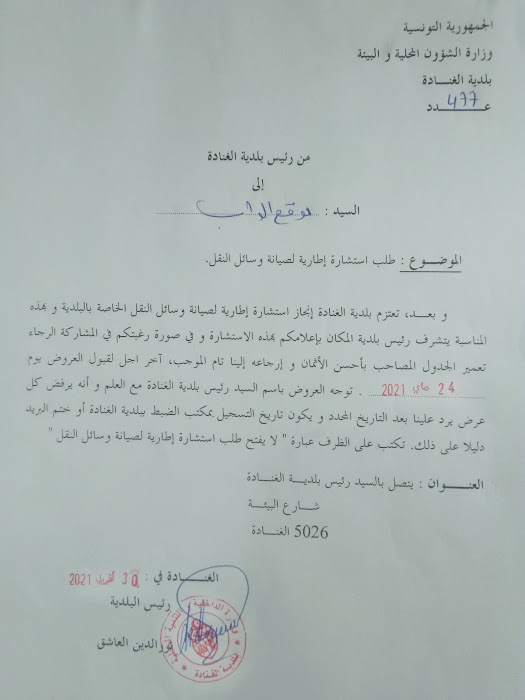 الجمهورية التونسية
وزارة الشؤون المحلية و البيئة
بلدية الغنـــادة
عـــــدد 477
من رئيس بلدية الغنادة
إلى
السيد : موقع الواب
الموضـوع : طلب استشارة إطارية لصيانة وسائل النقل.
و بعـــد، تعتزم بلدية الغنادة إنجاز استشارة إطارية لصيانة وسائل النقل الخاصة بالبلدية و بهذه
المناسبة يتشرف رئيس بلدية المكان بإعلامكم بهذه الاستشارة و في صورة رغبتكم في المشاركة الرجاء
تعمير الجدول المصاحب بأحسن الأثمان و إرجاعه إلينا تام الموجب، آخر اجل لقبول العروض يوم
24 ماي 2021 . توجه العروض باسم السيد رئيس بلدية الغنادة مع العلم و أنه يرفض كل
عرض يرد علينا بعد التاريخ المحدد و يكون تاريخ التسجيل بمكتب الضبط ببلدية الغنادة أو ختم البريد
دليلا على ذلك. تكتب على الظرف عبارة " لا يفتح طلب استشارة إطارية لصيانة وسائل النقل "
العنــــوان : يتصل بالسيد رئيس بلديـة الغنـادة
شـــارع البيئـة
5026 الغنـادة
الغنــــادة في : 30 أفريل 2021
رئيس البلدية
نورالدين العاشق
بلدية الغنادة